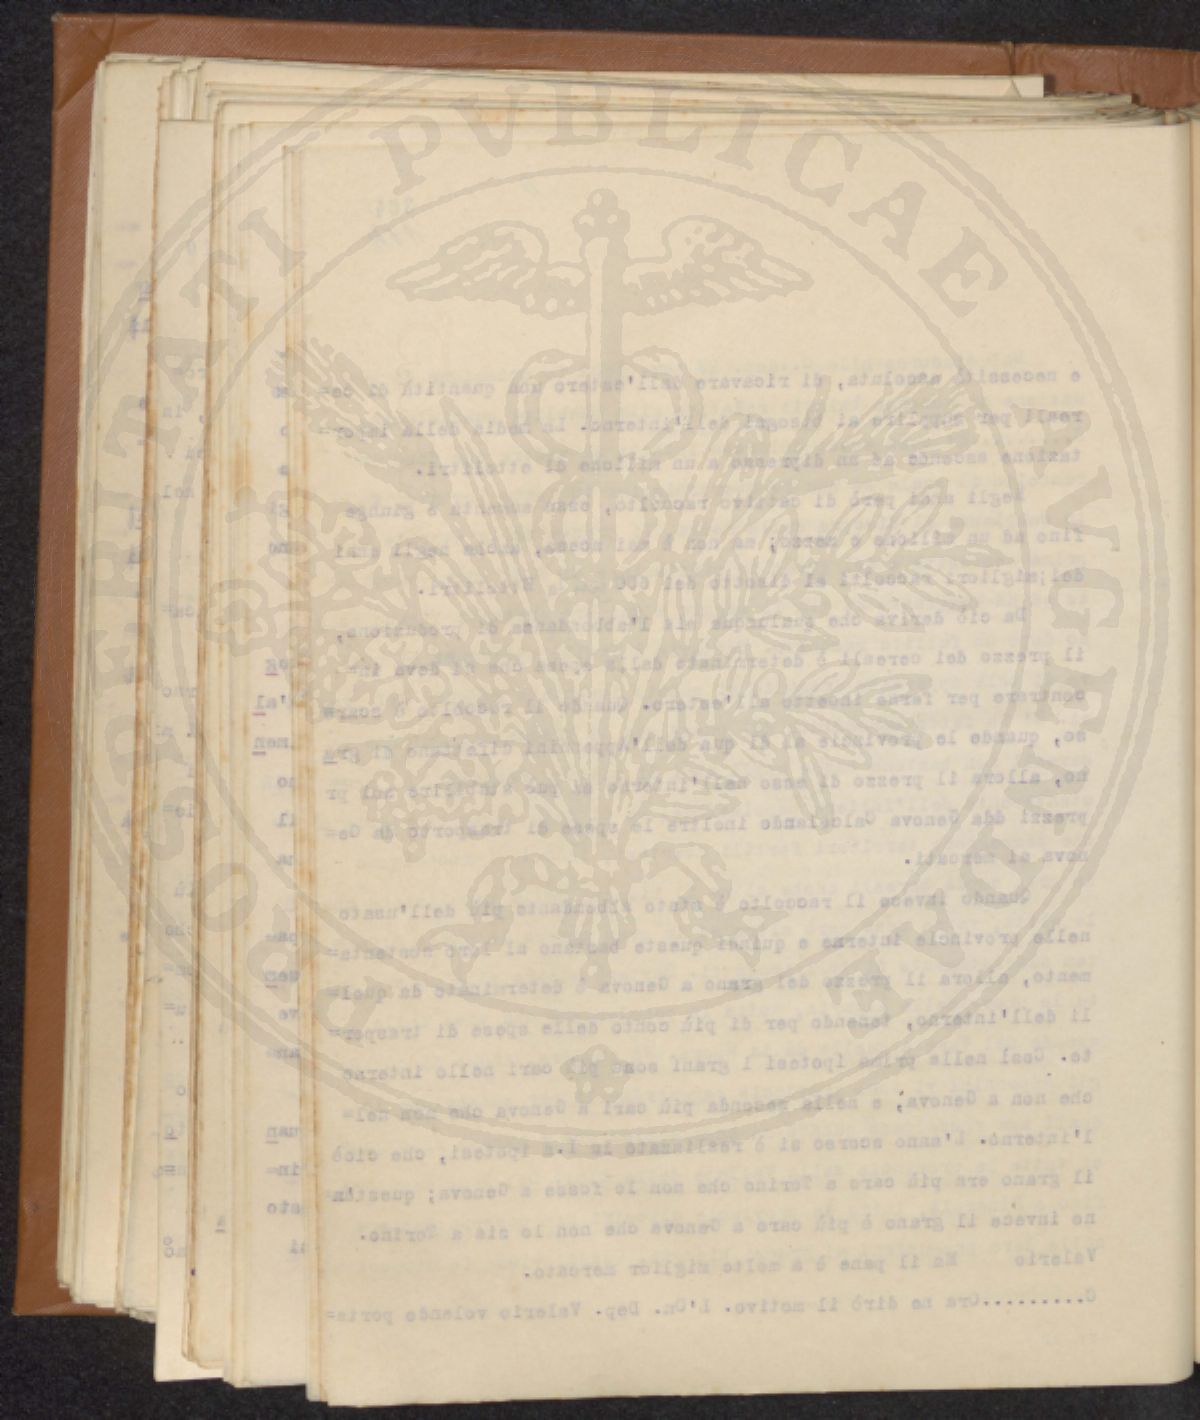 PROSPERITATI PVBLICAE AVGENDAE
e necessità assoluta, di ricavare dall'estero una quantità di ce=
reali per supplire ai bisogni dell'interno. La media della impor=
tazione ascende ad un dipresso a un milione di ettolitri.
Negli anni però di cattivo raccolto, essa aumenta e giunge
fino ad un milione e mezzo; ma non è mai scesa, anche negli anni
dei migliori raccolti al disotto dei 600 Ettolitri.
Da ciò deriva che qualunque sia l'abbondanza di produzione,
il prezzo dei cereali è determinato dalla spesa che si deve in=
contrare per farne incetta all'estero. Quando il raccolto è scars
so, quando le provincie al di qua dell'Appennini difettano di gra
no, allora il prezzo di esso nell'interno si può stabilire sui pr
prezzi dda Genova Calcolando inoltre le spese di trasporto da Ge=
nova ai mercati.
Quando invece il raccolto è stato abbondante più dell'usato
nelle provincie interne e quindi queste bastano al loro sostenta=
mento, allora il prezzo del grano a Genova è determinato da quel=
li dell'interno, tenendo per di più conto delle spese di traspor=
to. Così nella prima ipotesi i grani sono più cari nello interno
che non a Genova; e nella seconda più cari a Genova che non nel=
l'interno. L'anno scorso si è realizzata la I.a ipotesi, che cioè
il grano era più caro a Torino che non lo fosse a Genova; quest'an=
no invece il grano è più caro a Genova che non lo sia a Torino.
Valerio Ma il pane è a molto miglior mercato.
C..........Ora ne dirò il motivo. L'On. Dep. Valerio volendo porta=